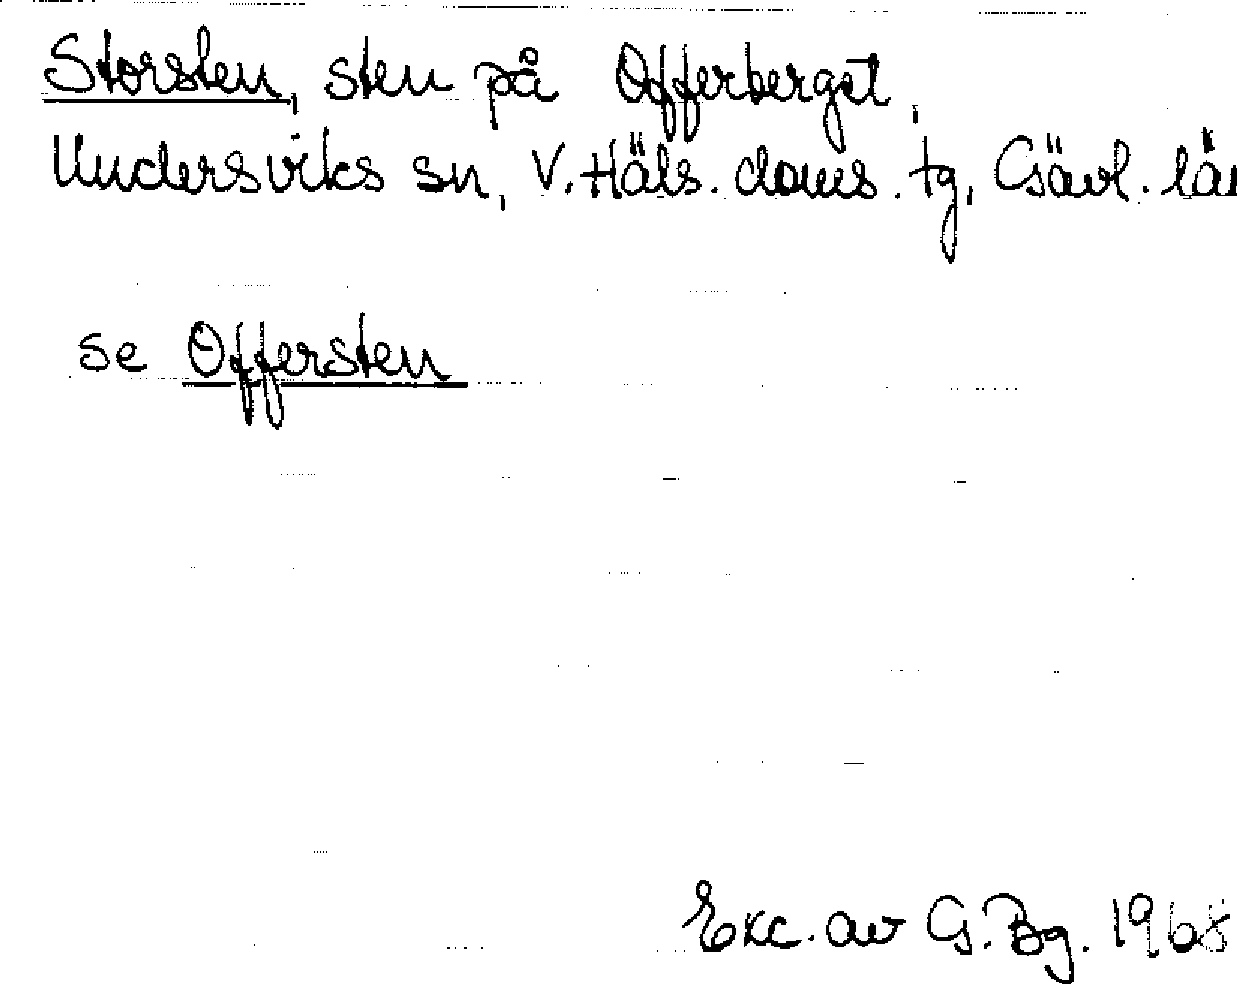 Storsten, sten på Offerberget,
Undersviks sn, V. Häls. doms. tg, Gävl. län
se Offersten
Exc. av G. Bg. 1968